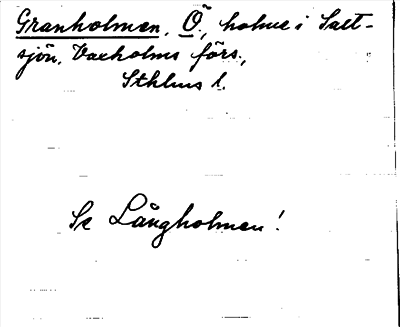 Granholmen, Ö, holme i Salt-
sjön, Vaxholms förs.,
Sthlms l.
Se Långholmen!